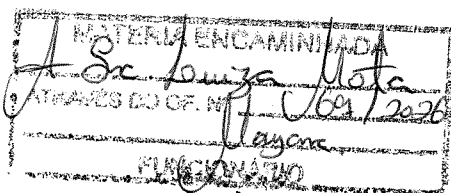 MATERIA ENCAMINHADA
A Sra Luiza Mota
ATRAVÉS DO OF. Nº 169/2026
Nayara
FUNCIONARIO